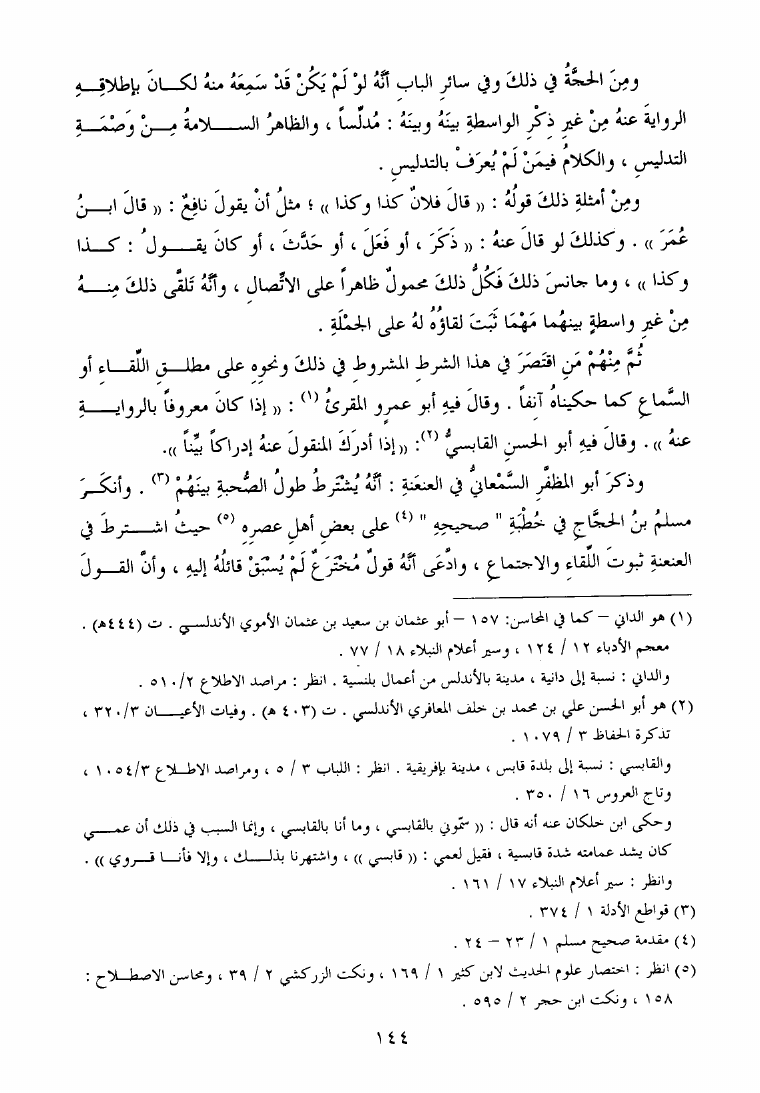 ومِنَ الحجَّةُ في ذلكَ وفي سائرِ البابِ أنَّهُ لوْ لَمْ يَكُنْ قَدْ سَمِعَهُ منهُ لكـــانَ بإطلاقِـــهِ
الروايةَ عنهُ مِنْ غيرِ ذكْرِ الواسطةِ بينَهُ وبينَهُ : مُدلِّساً ، والظاهرُ الســـلامةُ مِـــنْ وَصْمَـــةِ
التدليسِ ، والكلامُ فيمَنْ لَمْ يُعرَفْ بالتدليسِ .
ومِنْ أمثلةِ ذلكَ قولُهُ : (( قالَ فلانٌ كذا وكذا )) ؛ مثلُ أنْ يقولَ نافِعٌ : (( قالَ ابـــنُ
عُمَرَ )) . وكذلكَ لو قالَ عنهُ : (( ذَكَرَ ، أو فَعَلَ ، أو حَدَّثَ ، أو كانَ يقـــولُ : كـــذا
وكذا )) ، وما جانسَ ذلكَ فَكُلُّ ذلكَ محمولٌ ظاهراً على الاتِّصالِ ، وأنَّهُ تَلقَّى ذلكَ مِنـــهُ
مِنْ غيرِ واسطةٍ بينهُما مَهْمَا ثَبَتَ لقاؤُهُ لهُ على الجمْلَةِ .
ثُمَّ مِنْهُمْ مَنِ اقتَصَرَ في هذا الشرطِ المشروطِ في ذلكَ ونحوِهِ على مطلـــقِ اللِّقـــاءِ أو
السَّماعِ كما حكيناهُ آنفاً . وقالَ فيهِ أبو عمرٍو المقرئُ (١) : (( إذا كانَ معروفاً بالروايـــةِ
عنهُ )) . وقالَ فيهِ أبو الحسنِ القابسيُّ (٢): (( إذا أدركَ المنقولَ عنهُ إدراكاً بيِّناً )).
وذكرَ أبو المظفَّرِ السَّمْعانيُّ في العنعَنةِ : أنَّهُ يُشْتَرطُ طولُ الصُّحبةِ بينَهُمْ (٣) . وأنكَـــرَ
مسلمُ بنُ الحجَّاجِ في خُطْبَةِ " صحيحِهِ " (٤) على بعضِ أهلِ عصرِهِ (٥) حيثُ اشـــترطَ في
العنعنةِ ثبوتَ اللِّقاءِ والاجتماعِ ، وادَّعَى أنَّهُ قولٌ مُخْتَرَعٌ لَمْ يُسْبَقْ قائلُهُ إليهِ ، وأنَّ القـــولَ
(١) هو الداني – كما في المحاسن: ١٥٧ – أبو عثمان بن سعيد بن عثمان الأموي الأندلسي . ت (٤٤٤ه) .
معجم الأدباء ١٢ / ١٢٤ ، وسير أعلام النبلاء ١٨ / ٧٧ .
والداني : نسبة إلى دانية ، مدينة بالأندلس من أعمال بلنسية . انظر : مراصد الاطلاع ٥١٠/٢ .
(٢) هو أبو الحسن علي بن محمد بن خلف المعافري الأندلسي . ت (٤٠٣ ه) . وفيات الأعيـــان ٣٢٠/٣ ،
تذكرة الحفاظ ٣ / ١٠٧٩ .
والقابسي : نسبة إلى بلدة قابس ، مدينة بإفريقية . انظر : اللباب ٣ / ٥ ، ومراصد الاطـــلاع ١٠٥٤/٣ ،
وتاج العروس ١٦ / ٣٥٠ .
وحكى ابن خلكان عنه أنه قال : (( سمّوني بالقابسي ، وما أنا بالقابسي ، وإنما السبب في ذلك أن عمـــي
كان يشد عمامته شدة قابسية ، فقيل لعمي : (( قابسي )) ، واشتهرنا بذلـــك ، وإلا فأنـــا قـــروي )) .
وانظر : سير أعلام النبلاء ١٧ / ١٦١ .
(٣) قواطع الأدلة ١ / ٣٧٤ .
(٤) مقدمة صحيح مسلم ١ / ٢٣ – ٢٤ .
(٥) انظر : اختصار علوم الحديث لابن كثير ١ / ١٦٩ ، ونكت الزركشي ٢ / ٣٩ ، ومحاسن الاصطـــلاح :
١٥٨ ، ونكت ابن حجر ٢ / ٥٩٥ .
١٤٤